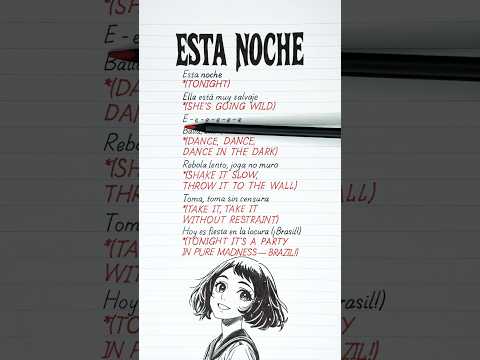 ESTA NOCHE
Esta noche
*(TONIGHT)
Ella está muy salvaje
*(SHE'S GOING WILD)
E-e-e-e-e-e
*(DANCE, DANCE,
DANCE IN THE DARK)
Rebola lento, joga no muro
*(SHAKE IT SLOW,
THROW IT TO THE WALL)
Toma, toma sin censura
*(TAKE IT, TAKE IT
WITHOUT RESTRAINT)
Hoy es fiesta en la locura (¡Brasil!)
*(TONIGHT IT'S A PARTY
IN PURE MADNESS—BRAZIL!)